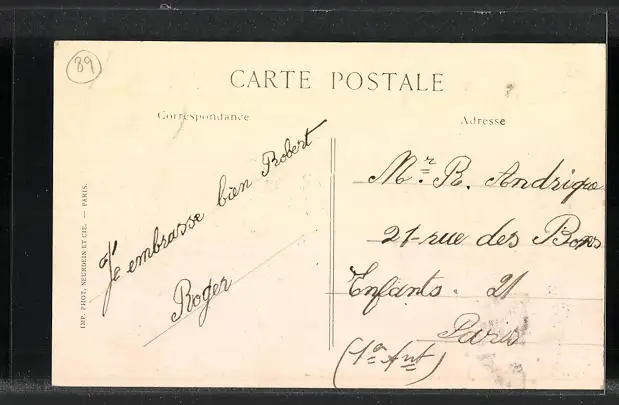 89
CARTE POSTALE
Correspondance
Adresse
Je embrasse bien Robert
Roger
Mr. R. Andrique
21 - rue des Bons
Enfants - 21
Paris
IMP. PHOT. NEURDEIN ET CIE. — PARIS.